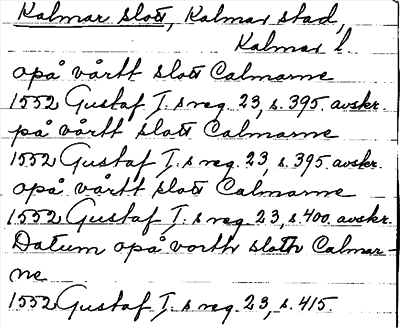 Kalmar slott, Kalmar stad,
Kalmar l
opå vårtt slott Calmarne
1552 Gustaf I:s reg. 23, s. 395 avskr.
på vårtt slott Calmarne
1552 Gustaf I:s reg. 23, s. 395 avskr.
opå vårtt slott Calmarne
1552 Gustaf I:s reg. 23, s. 400 avskr.
Datum opå vorth sloth Calmar-
ne
1552 Gustaf I:s reg. 23, s. 415.